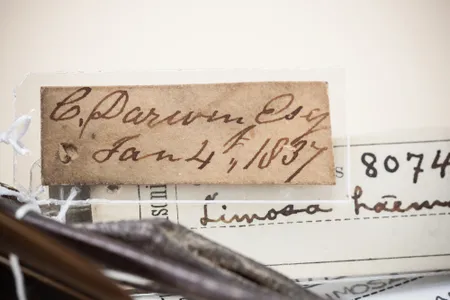 C. Darwin Esq
Jan 4th, 1837
8074
Limosa haem